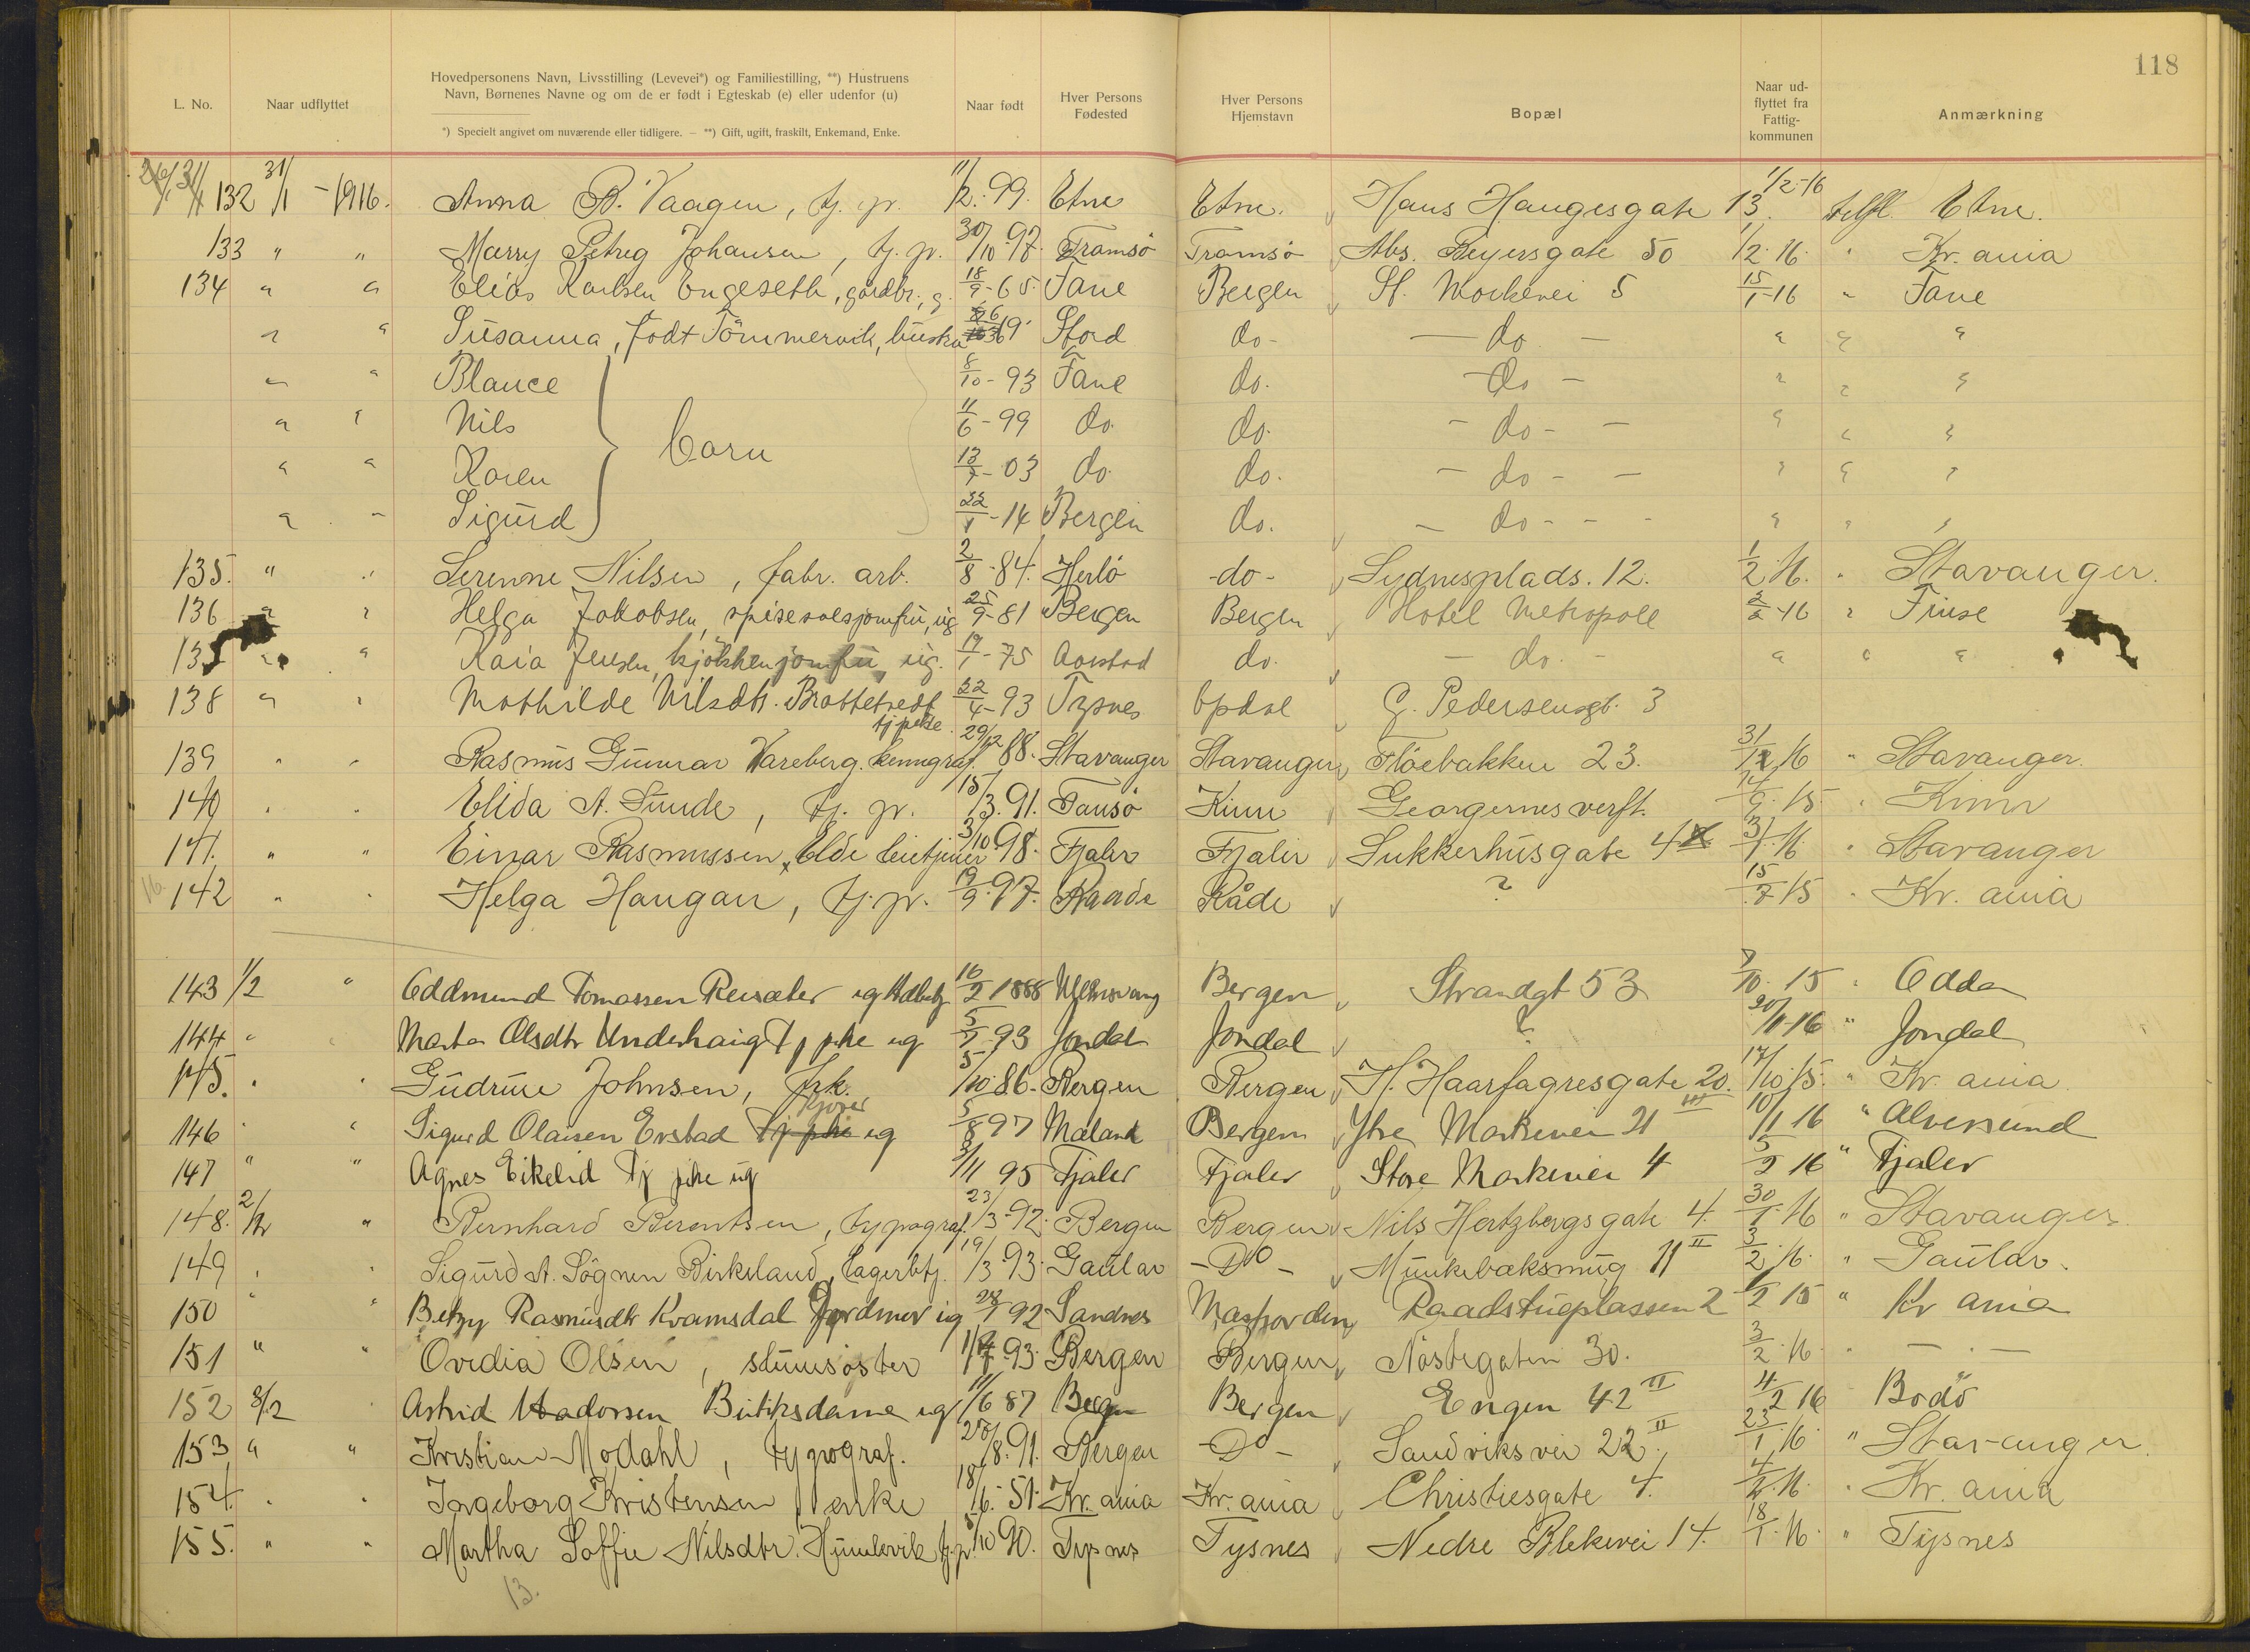 118
L. No.
Naar udflyttet
Hovedpersonens Navn, Livsstilling (Levevei*) og Familiestilling, **) Hustruens
Navn, Børnenes Navne og om de er født i Egteskab (e) eller udenfor (u)
*) Specielt angivet om nuværende eller tidligere. — **) Gift, ugift, fraskilt, Enkemand, Enke.
Naar født
Hver Persons
Fødested
Hver Persons
Hjemstavn
Bopæl
Naar ud-
flyttet fra
Fattig-
kommunen
Anmærkning
132 31/1 - 1916. Anna B. Vaagen, tj. pr. 11/2. 99. Etne Etne. Hans Haugesgate 13. 1/2-16 tilfl. Etne.
133 " " Marry Petreg Johansen, tj. pr. 30/10 97. Tromsö Tromsö Abs. Beyersgate 50 1/2. 16. " Kr. ania
134 " " Elias Karlsen Engeseth, gardbr., g. 18/9-65. Fane Bergen St. Markevei 5 15/1-16 " Fane
" " Susanna, født Tömmervik, hustru 69 Stord do- - do - " " "
" " Blance 8/10-93 Fane do. - do - " " "
" " Nils 11/6-99 do. do. - do - - " " "
barn
" " Karen 13/7-03 do. do. - do - - " " "
" - Sigurd 22/1-14 Bergen do. - do - - - " " "
135. " " Serenne Nilsen, fabr. arb. 2/8-84. Herlö -do- Sydnesplads. 12. 1/2. 16. " Stavanger.
136 " " Helga Jakobsen, spisesalsjomfru, ug 25/9-81 Bergen Bergen Hotel Metropole 2/2-16 " Finse
137 " " Kaia Jensen, kjökkenjomfru, ug. 19/1-75 do. - do. - " " "
138 " " Mathilde Nilsdtr. Brattetvedt tj pike 22/4-93 Tysnes Opdal G. Pedersensgt. 3
139 " " Rasmus Gunnar Vareberg. kemigraf. 29/12 88. Stavanger Stavanger Flöebakken 23. 31/1 16 " Stavanger.
140 " " Elida A. Sunde, tj. pr. 15/3. 91. Tansö Kinn Georgernes verft. 14/9. 15. " Kinn
141. " " Einar Rasmussen Elde leietjener 3/10 98. Fjaler Fjaler Sukkerhusgate 4 31/1. 16. " Stavanger
142 " " Helga Haugan, tj. pr. 19/9. 97. Raade Råde ? 15/7 15 " Kr. ania
143 1/2 " Oddmund Tomassen Reisæter ug 16/2 1888 Bergen Strandgt 53 7/10. 15 " Odda
144 " " Marta Olsdtr Underhaug Tj pike ug 5/7 93 Jondal Jondal ? 20/1-16 " Jondal
145. " " Gudrun Johnsen, frk. 5/10. 86. Bergen Bergen H. Haarfagresgate 20. III 17/10. 15. " Kr. ania
146 " " Sigurd Olaisen Erstad ug 5/8 97 Maland Bergen Ytre Markevei 21 10/1 16 " Alversund
147 " " Agnes Eikelid Tj pike ug 3/11 95 Fjaler Fjaler Store Markevei 4 5/2 16 " Fjaler
148. 2/2 " Bernhard Berentsen, typograf. 23/3. 92. Bergen Bergen Nils Hertzbergsgate 4. 30/1. 16 " Stavanger.
149 " " Sigurd A. Sögnen Birkeland, lagerbtj. 19/3. 93. Gaular - Do - Munkebæksmug 11 II 3/2. 16. " Gaular.
150 " " Betzy Rasmusdtr Kvamsdal Jordmor ug 28/1 92 Sandnes Masfjorden Raadstuplassen 2 1/2 15 " Kr ania
151 " " Ovedia Olsen, stuensöster 93. Bergen Bergen Nöstegaten 30. 3/2. 16. " - " -
152 3/2 " Astrid Hadorsen Butiksdame ug 11/6 87 Bergen Bergen Engen 42 II 4/2 16 " Bodö
153 " " Kristian Modahl, typograf. 20/8. 91. Bergen - Do - Sandviksvei 22 II, 23/1. 16. " Stavanger.
154. " " Ingeborg Kristensen, enke 18/6. 51. Kr. ania Kr. ania Christiesgate 4. 4/2. 16. " Kr. ania
155. " " Martha Soffie Nilsdtr. Humlevik tj. pr. 5/10 90. Tysnes Tysnes Nedre Blekevei 14. 18/1. 16. " Tysnes
13.